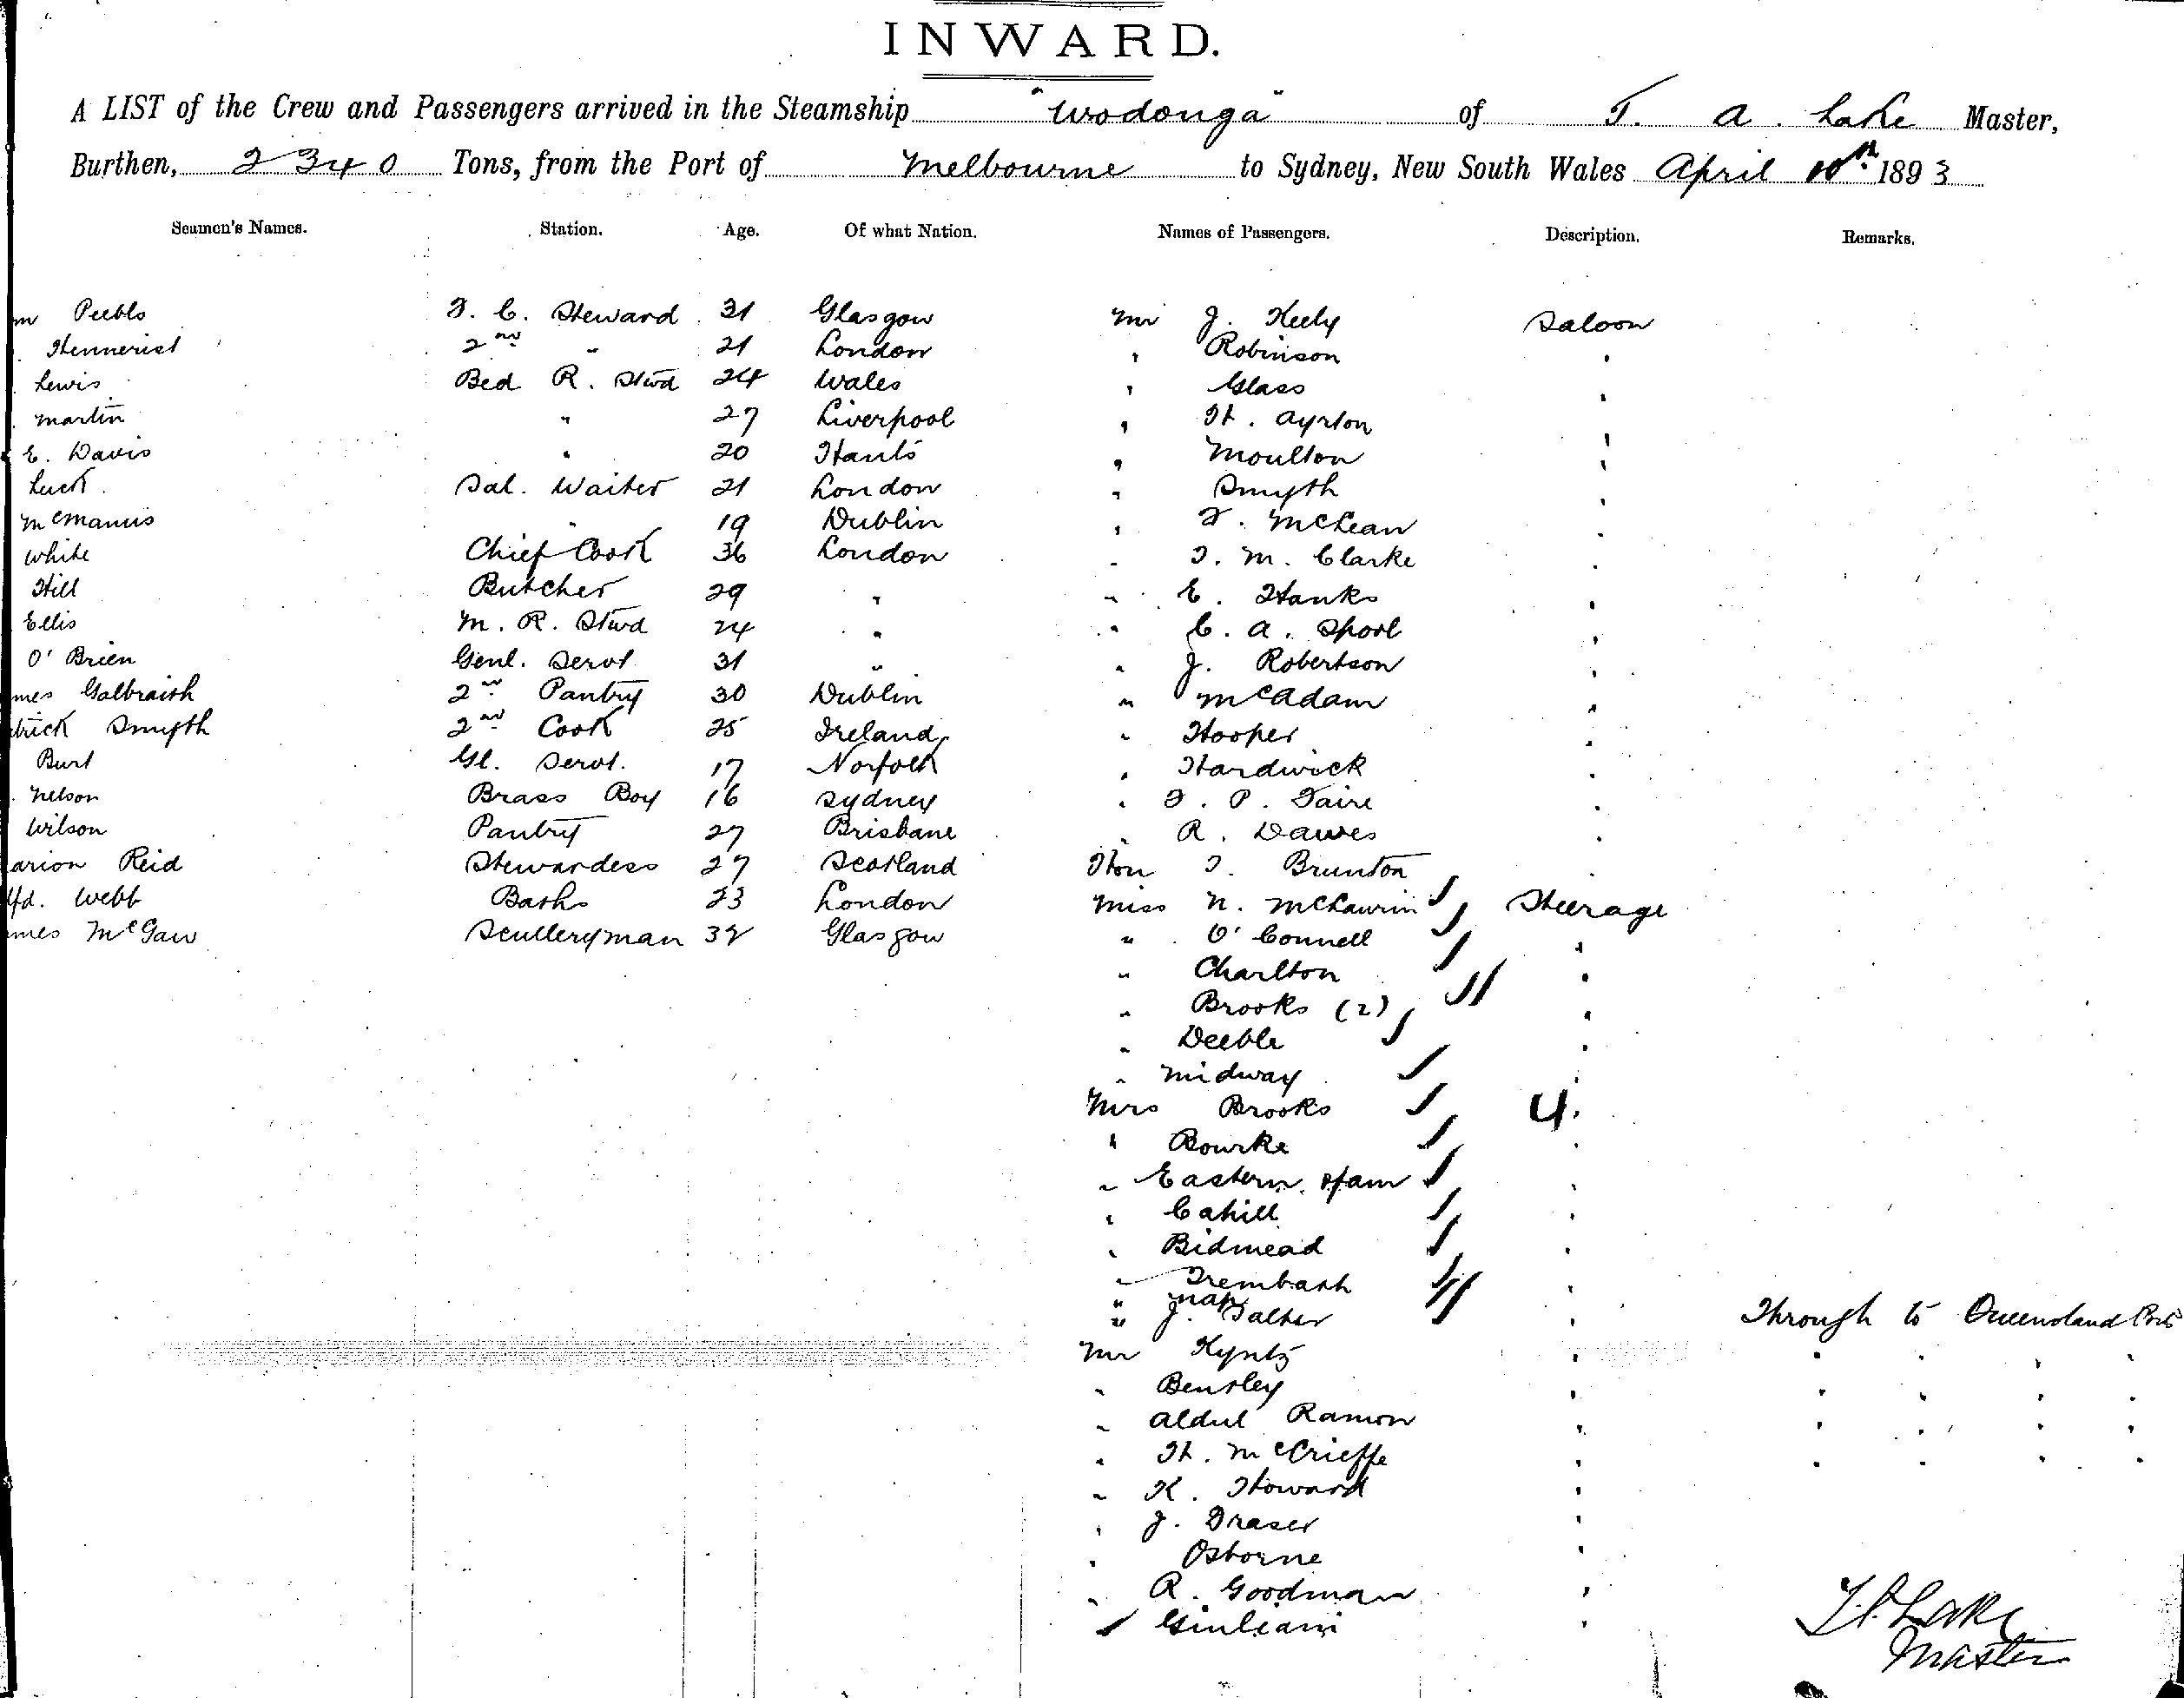 INWARD.
A LIST of the Crew and Passengers arrived in the Steamship "Wodonga" of T. A. Lake Master,
Burthen, 2340 Tons, from the Port of Melbourne to Sydney, New South Wales April 10th 1893
Seamen's Names. Station. Age. Of what Nation. Names of Passengers. Description. Remarks.
m Peebls F. C. Steward 31 Glasgow Mr J. Keely Saloon
2nd " 21 London " Robinson "
Lewis Bed R. Stwd 24 Wales " Glass "
Martin " 27 Liverpool " H. Ayrton "
E. Davis " 20 Hants " Moulton "
Luck Sal. Waiter 21 London " Smyth "
McManus " 19 Dublin " F. McLean "
White Chief Cook 36 London " T. M. Clarke "
Hill Butcher 29 " " E. Hanks "
Ellis M. R. Stwd 24 " " C. A. Spool "
O'Brien Genl. Servt 31 " " J. Robertson "
mes Galbraith 2nd Pantry 30 Dublin " McAdam "
trick Smyth 2nd Cook 25 Ireland " Hooper "
Burt Gl. Servt. 17 Norfolk " Hardwick "
Nelson Brass Boy 16 Sydney " F. P. Faire "
Wilson Pantry 27 Brisbane " R. Dawes "
arion Reid Stewardess 27 Scotland Hon T. Brunton
fd. Webb Baths 23 London Miss N. McLaurin Steerage
mes McGaw Sculleryman 32 Glasgow " O'Connell "
" Charlton "
" Brooks (2) "
" Deeble "
" Midway "
Mrs Brooks 4.
" Bourke "
" Eastern. Ham "
" Cahill "
" Bidmead "
" Trembath "
" J. Salter " Through to Queensland Ports
Mr Kyntz " " " " "
" Bensley " " " " "
" Aldul Ramon " " " " "
" H. McCrieffe " " " " "
" K. Howard "
" J. Fraser "
" Osborne "
" R. Goodman "
Giuliani "
T. A. Lake
Master